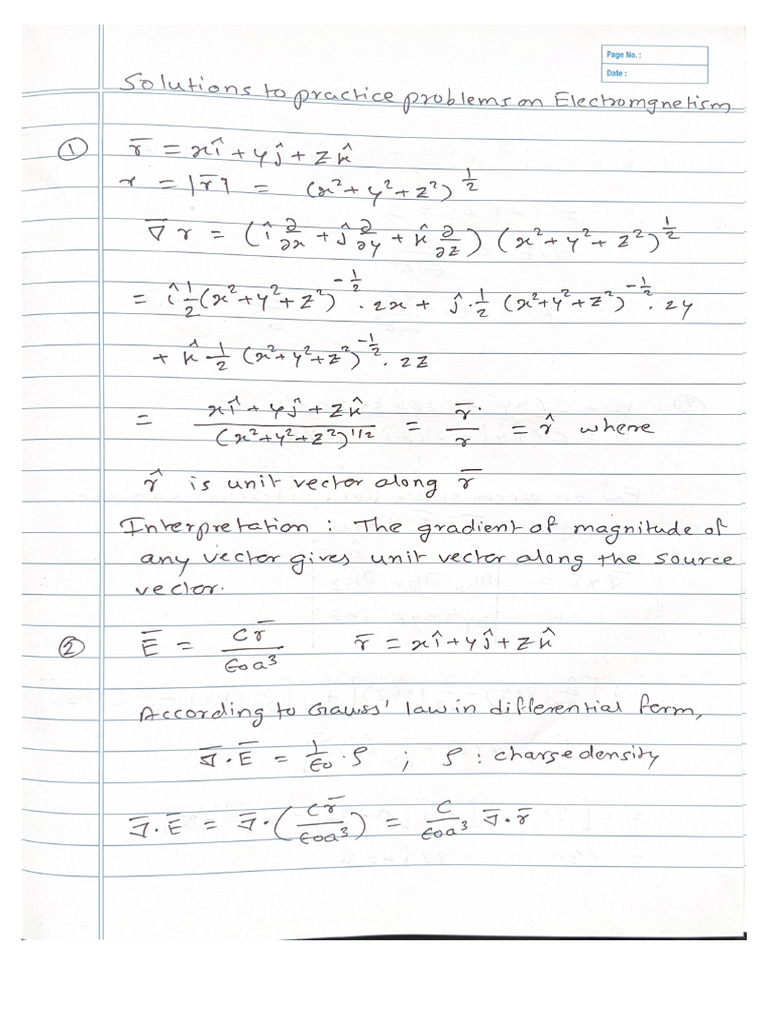 Page No. :
Date :
Solutions to practice problems on Electromgnetism
① r̅ = xî + yĵ + zk̂
r = |r̅| = (x² + y² + z²)^½
∇̅ r = (î ∂/∂x + ĵ ∂/∂y + k̂ ∂/∂z) (x² + y² + z²)^½
= î ½ (x² + y² + z²)^-½ . 2x + ĵ . ½ (x² + y² + z²)^-½ . 2y
+ k̂ ½ (x² + y² + z²)^-½ . 2z
= (xî + yĵ + zk̂) / (x² + y² + z²)^1/2 = r̅ / r = r̂ where
r̂ is unit vector along r̅
Interpretation : The gradient of magnitude of
any vector gives unit vector along the source
vector.
② E̅ = Cr̅ / ϵ₀a³ r̅ = xî + yĵ + zk̂
According to Gauss' law in differential form,
∇̅ . E̅ = 1/ϵ₀ . ρ ; ρ : charge density
∇̅ . E̅ = ∇̅ . (Cr̅ / ϵ₀a³) = C / ϵ₀a³ ∇̅ . r̅